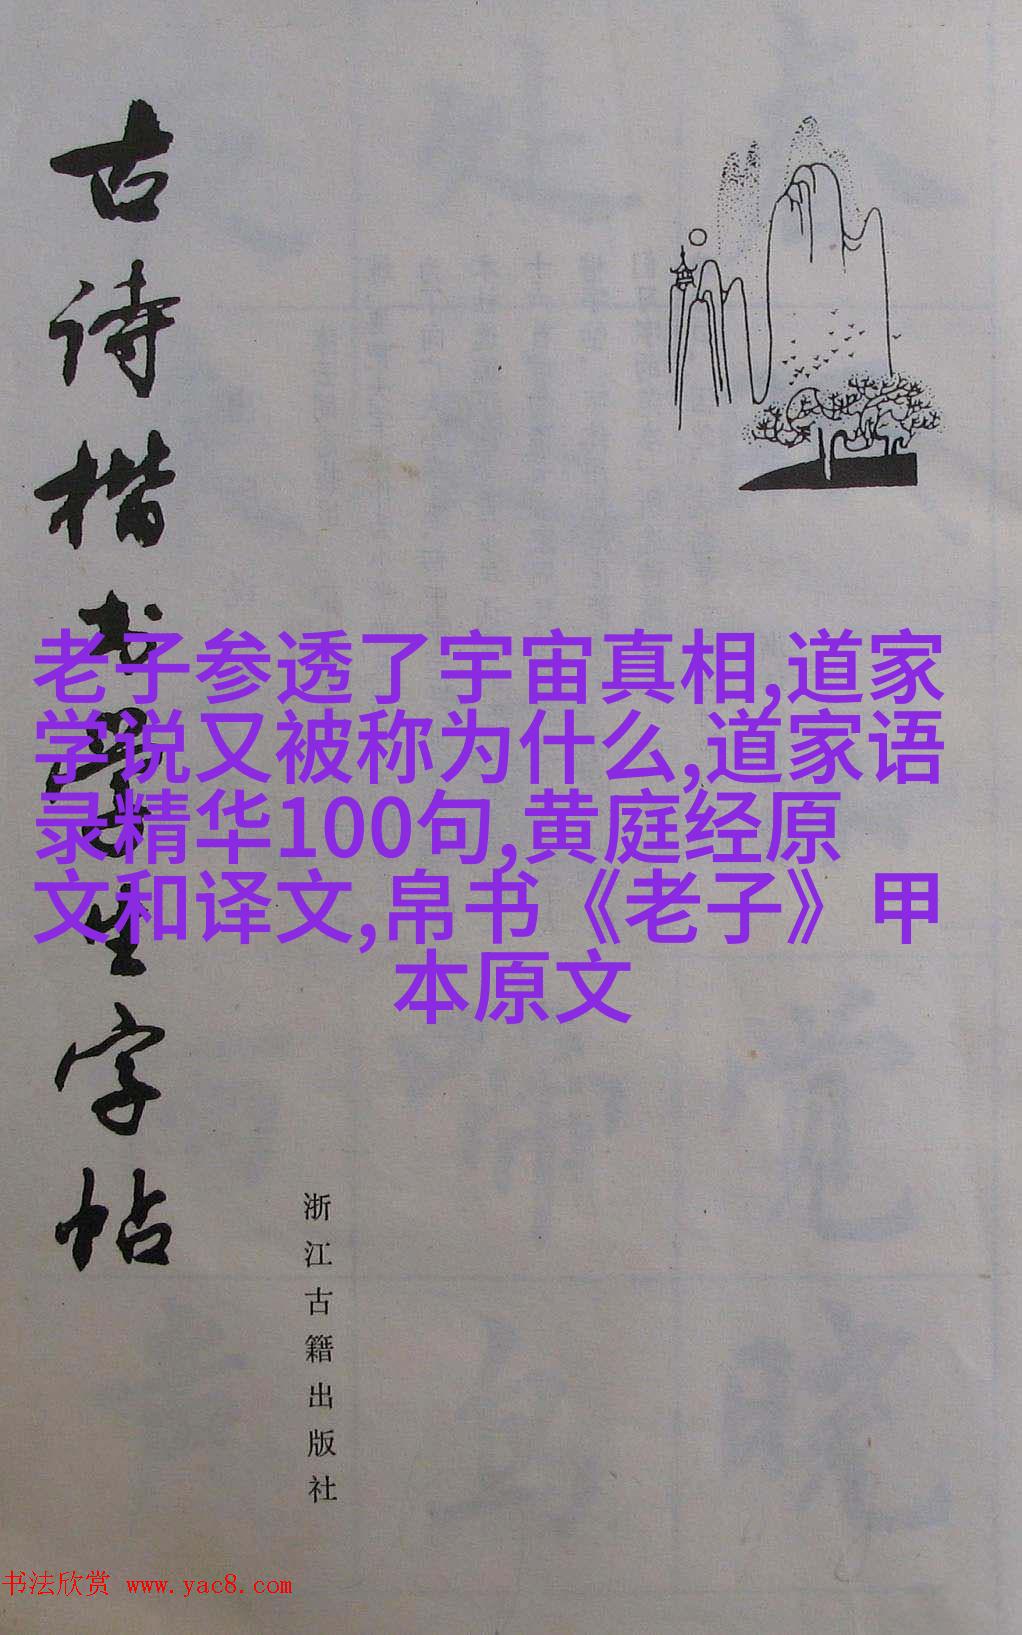 古诗楷书学生字帖
老子参透了宇宙真相,道家
学说又被称为什么,道家语
录精华100句,黄庭经原
文和译文,帛书《老子》甲
本原文
浙江古籍出版社
书法欣赏 www.yac8.com